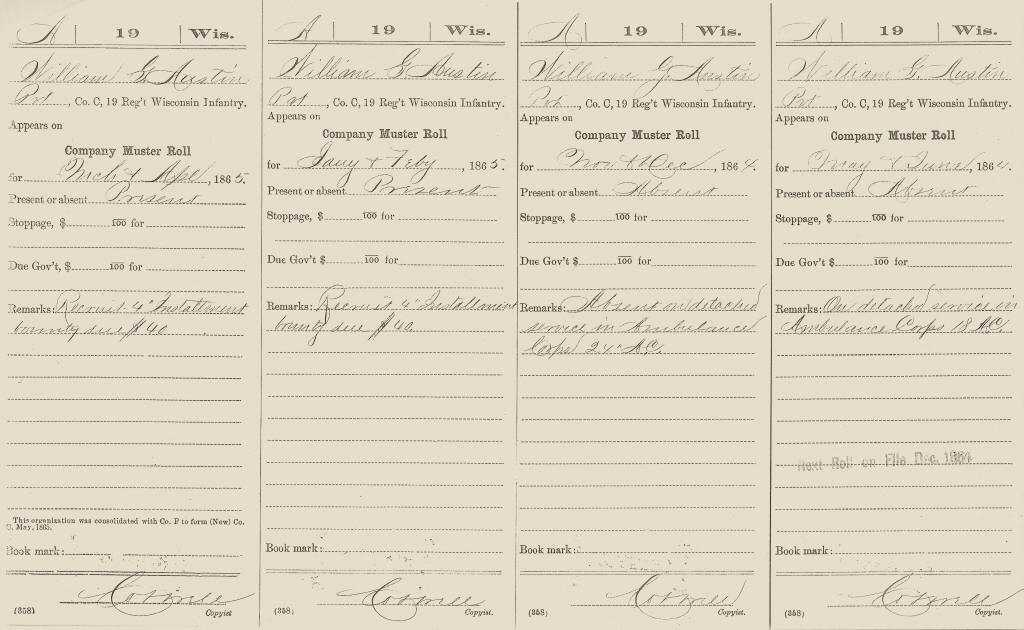 A | 19 | Wis.
William G. Austin
Pvt, Co. C, 19 Reg't Wisconsin Infantry.
Appears on
Company Muster Roll
for Mch & Apl, 1865.
Present or absent Present
Stoppage, $ 100 for
Due Gov't, $ 100 for
Remarks: Recruit 4" Installment
bounty due $40
This organization was consolidated with Co. F to form (New) Co.
C, May, 1865.
Book mark:
(358)
Copyist
A | 19 | Wis.
William G. Austin
Pvt, Co. C, 19 Reg't Wisconsin Infantry.
Appears on
Company Muster Roll
for Jany & Feby, 1865.
Present or absent Present
Stoppage, $ 100 for
Due Gov't, $ 100 for
Remarks: Recruit 4" Installment
bounty due $40.
Book mark:
(358)
Copyist.
A | 19 | Wis.
William G. Austin
Pvt, Co. C, 19 Reg't Wisconsin Infantry.
Appears on
Company Muster Roll
for Nov & Dec, 1864.
Present or absent Absent
Stoppage, $ 100 for
Due Gov't, $ 100 for
Remarks: Absent on detached
service in Ambulance
Corps 24" A.C.
Book mark:
(358)
Copyist.
A | 19 | Wis.
William G. Austin
Pvt, Co. C, 19 Reg't Wisconsin Infantry.
Appears on
Company Muster Roll
for May & June, 1864.
Present or absent Absent
Stoppage, $ 100 for
Due Gov't, $ 100 for
Remarks: On detached service in
Ambulance Corps 18 A.C.
Next Roll on File Dec. 1864
Book mark:
(358)
Copyist.